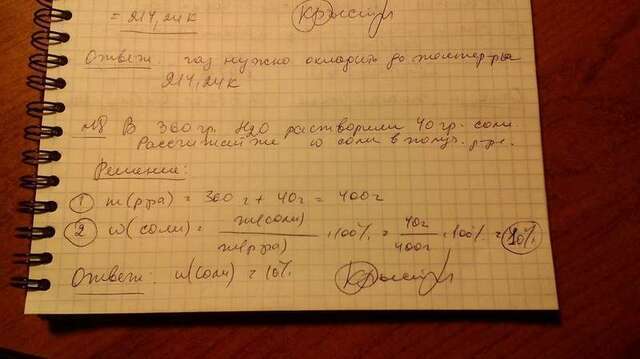 = 214,24К
Ответ: газ нужно охладить до темпер-ры
214,24К
№8 В 360 гр. H2O растворили 40 гр. соли.
Рассчитай же ω соли в получ. р-ре.
Решение:
① m(р-ра) = 360 г + 40г = 400г
② ω(соли) = m(соли) / m(р-ра) · 100% = 40г / 400г · 100% = 10%
Ответ: ω(соли) = 10%